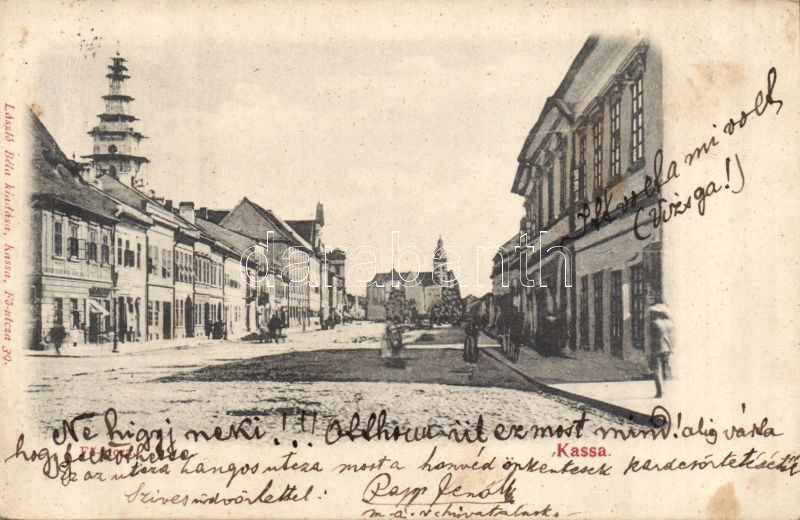 László Béla kiadása, Kassa, Fő-utcza 39.
Itt volt a mi volt
(Vizsga!)
darabanth
Ne higyj neki!!! Otthon ül ez most mind! alig várja
hogy
Fő-utcza
Kassa.
Ez az utcza hangos utcza most a honvéd önkentesek kardcsörtetésétől
Szives üdvözlettel:
Papp Jenő